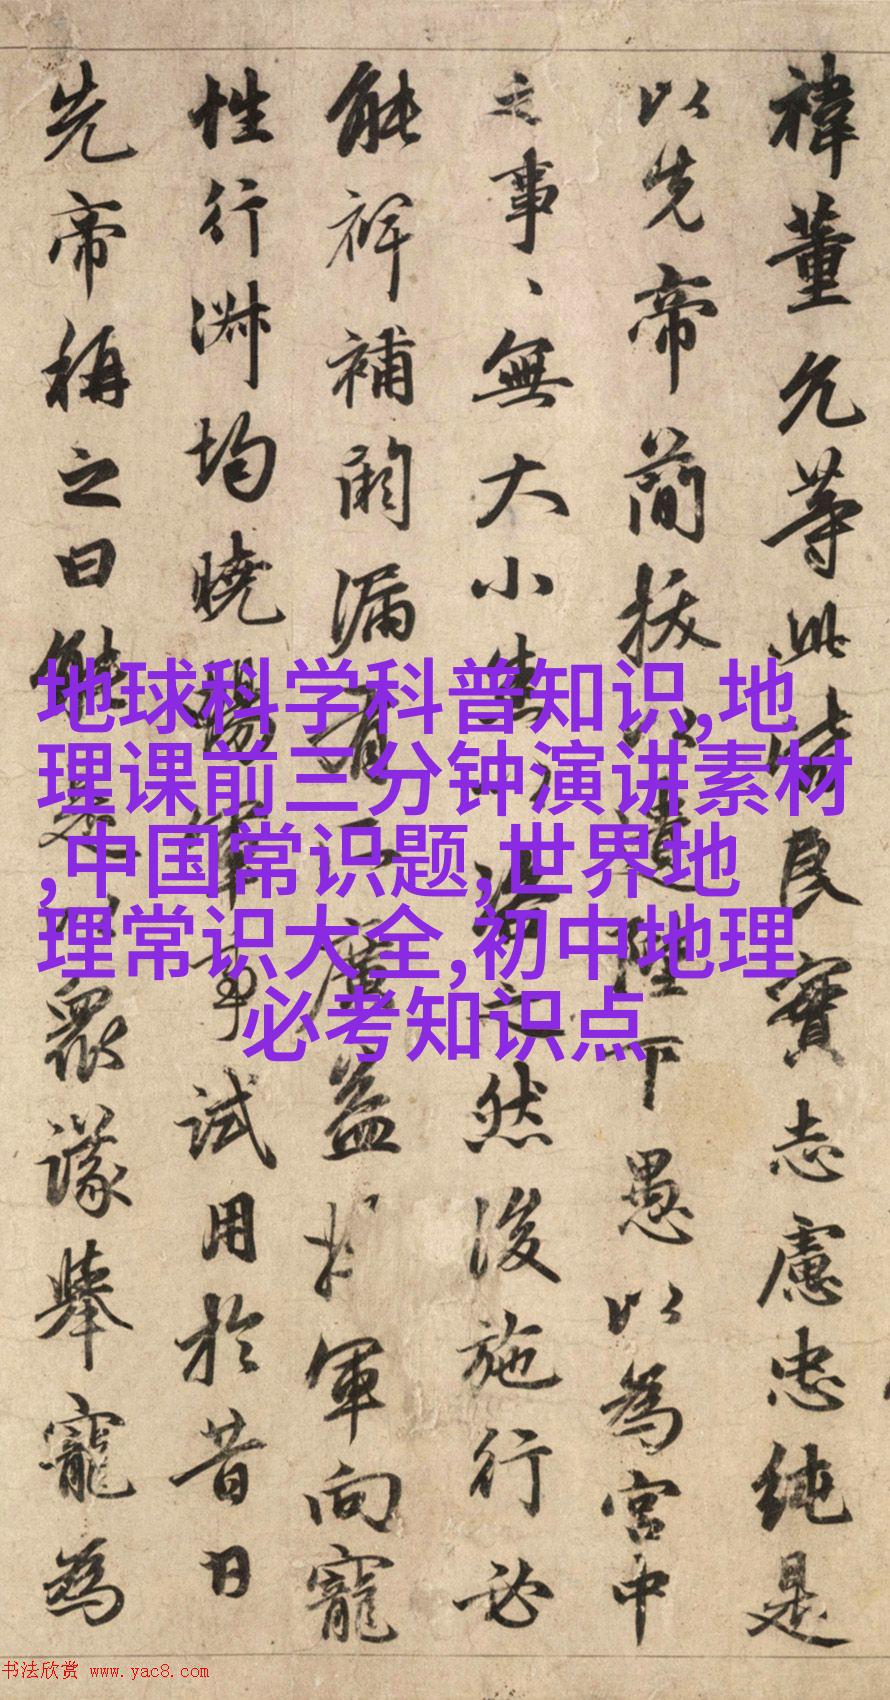 禕董允等此皆良實志慮忠純是
以先帝簡拔以遺陛下愚以為宮中
之事、無大小悉以之然後施行必
能裨補闕漏有所廣益將軍向寵
性行淑均曉暢軍事試用於昔日
先帝稱之曰能是以衆議舉寵為
地球科学科普知识,地
理课前三分钟演讲素材
,中国常识题,世界地
理常识大全,初中地理
必考知识点
书法欣赏 www.yac8.com